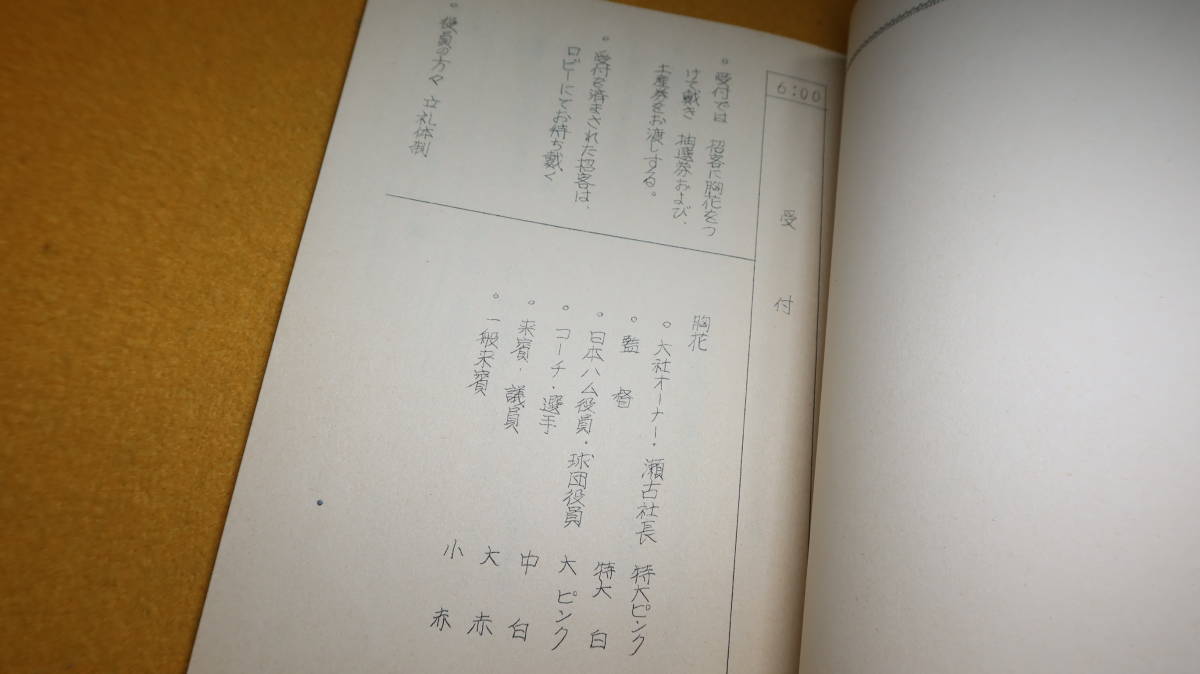 6:00
受付
。受付では 招客に胸花をつ
けて戴き 抽選券および、
土産券をお渡しする。
。受付を済まされた招客は、
ロビーにてお待ち戴く
。役員の方々 立礼体制
胸花
。大社オーナー・瀬古社長 特大ピンク
。監督 特大 白
。日本ハム役員・球団役員 大 ピンク
。コーチ・選手 中 白
。来賓・議員 大 赤
。一般来賓 小 赤